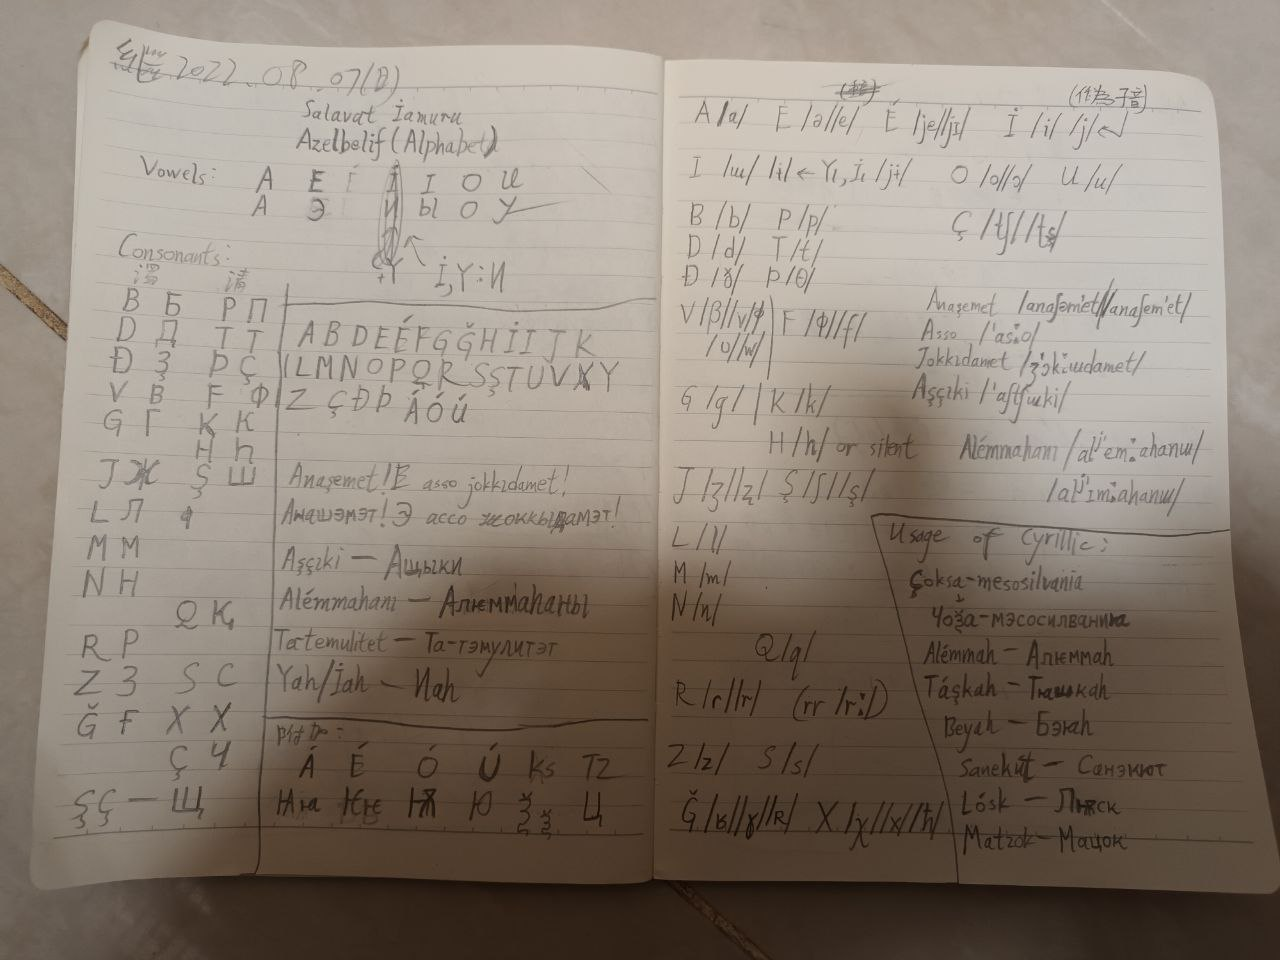 2022.08.07(日)
Salavat İamuru
Azelbelif (Alphabet)
Vowels: A E É İ I O U
A Э И Ы O У
+Y İ,Y:И
Consonants:
濁 清
B Б P П
D Д T T
Đ Ҙ Þ Ç
V B F Ф
G Г K K
H Һ
J Ж Ş Ш
L Л
M M
N H
Q Қ
R P
Z З S C
Ğ F X X
Ç Ч
ŞÇ — Щ
A B D E É F G Ğ H İ I J K
L M N O P Q R S Ş T U V X Y
Z Ç Đ Þ Á Ó Ú
Anaşemet! E asso jokkıdamet!
Анашэмэт! Э ассо жоккыдамэт!
Aşçıki — Ащыки
Alémmahanı — Алѥммаһаны
Tartemulitet — Та-тэмулитэт
Yah/İah — Иаһ
Á É Ó Ú ks TZ
Ѩ Ѥ Ѭ Ю Ѯ Ц
(作為子音)
A /a/ E /ə//e/ É /je//jɪ/ İ /i/ /j/
I /ɯ/ /ɨ/ ← Yı, İı /jɨ/ O /o//ɔ/ U /u/
B /b/ P /p/ Ç /tʃ//tʂ/
D /d/ T /t/
Đ /ð/ Þ /θ/
V /β//v/ F /ɸ//f/
/ʋ//w/
G /g/ K /k/
H /h/ or silent
J /ʒ//ʐ/ Ş /ʃ//ʂ/
L /l/
M /m/
N /n/
Q /q/
R /r//ɾ/ (rr /r:/)
Z /z/ S /s/
Ğ /ʁ//ɣ//ʀ/ X /χ//x//ħ/
Anaşemet /anaʃəmˈet//anaʃemˈet/
Asso /ˈas:o/
Jokkıdamet /ʒɔk:ɯdamet/
Aşçıki /ˈaʃtʃɯki/
Alémmahanı /alʲˈem:ahanɯ/
/alʲˈɪm:ahanɯ/
Usage of Cyrillic:
Çoksa-mesosilvania
Чоѯа-мэсосилваниа
Alémmah — Алѥммаһ
Táşkah — Тѩшкаһ
Beyah — Бэиаһ
Sanekút — Санэкют
Lósk — Лѭск
Matzok — Мацок